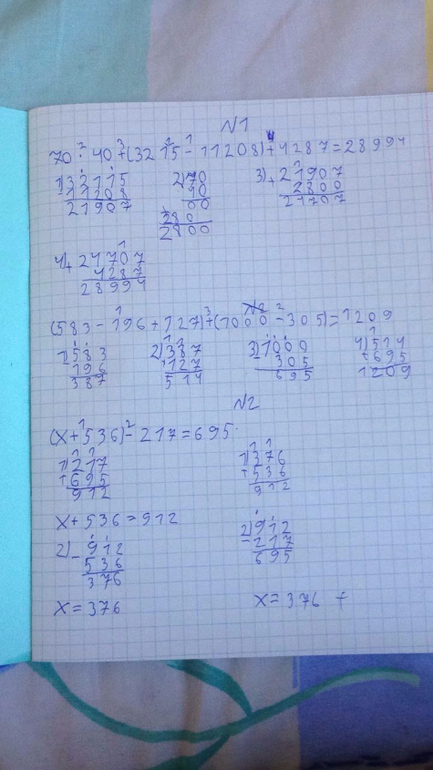 N1
70 · 40 + (32115 - 11208) + 4287 = 28994
1) 32115 2) 70 3) + 21907
- 11208 40 2800
21907 00 24707
280
2800
4) + 24707
4287
28994
(583 - 196 + 127) + (1000 - 305) = 1209
1) 583 2) 387 3) 1000 4) 514
196 + 127 305 + 695
387 514 695 1209
N2
(x + 536) - 217 = 695
1) 217 1) 376
+ 695 + 536
912 912
x + 536 = 912 2) 912
2) - 912 - 217
536 695
376
x = 376 x = 376 +